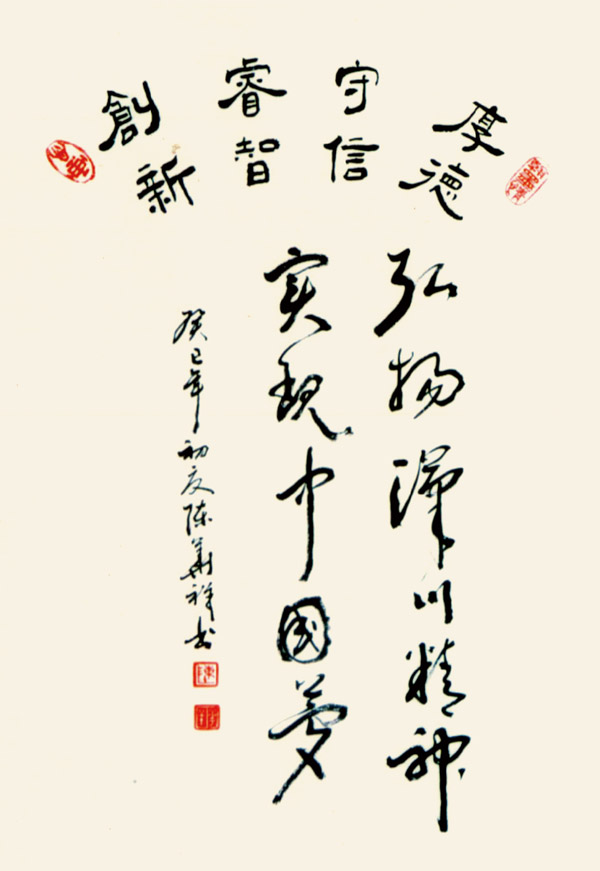 厚德
守信
睿智
創新
弘扬川精神
实现中国夢
癸巳年初夏陈祥书